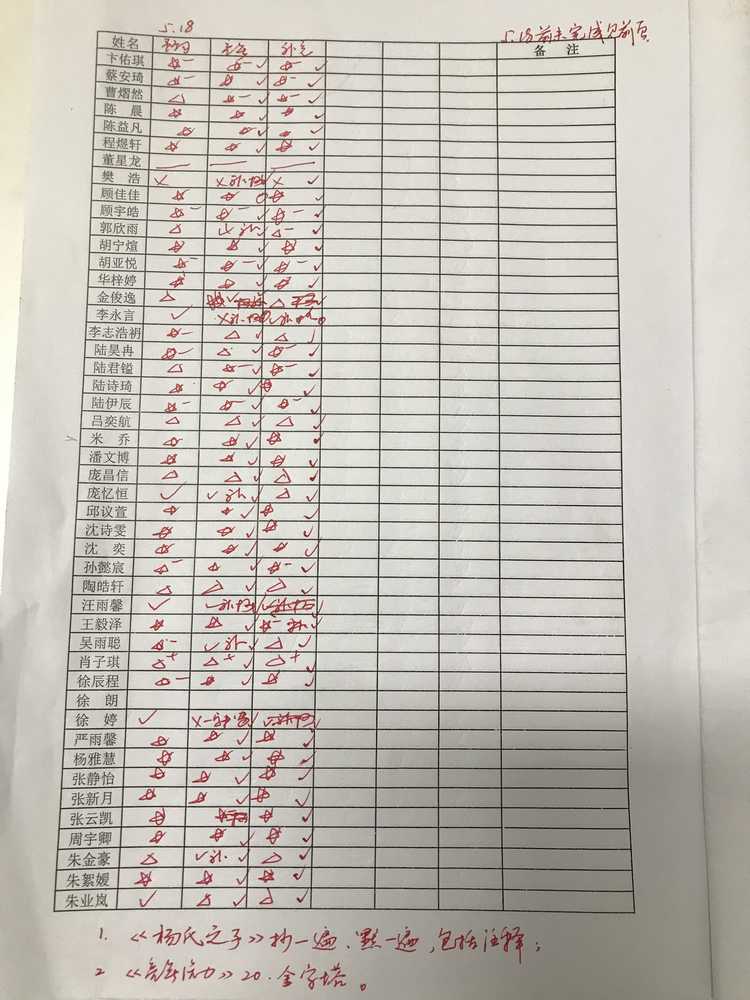 5.18
5.18前未完成见前页
姓名 备注
卞佑琪 ☆− ☆−✓ ☆−✓
蔡安琦 ☆− ☆✓ ☆−✓
曹熠然 △ ☆−✓ ☆−✓
陈晨 ☆ ☆✓ ☆✓
陈益凡 ☆ ☆✓ ☆✓
程煜轩 ☆ ☆✓ ☆✓
董星龙 — — —
樊浩 ✗ ✗补 ✗ ✓
顾佳佳 ☆ ☆ ☆✓
顾宇皓 ☆− ☆−✓ ☆−✓
郭欣雨 △ 补 △−✓
胡宁煊 ☆ ☆✓ ☆✓
胡亚悦 ☆− ☆−✓ ☆−✓
华梓婷 ☆ ☆✓ ☆✓
金俊逸 △ △
李永言 ✓ ✗补 补
李志浩礽 ☆− △✓ △✓
陆昊冉 ☆− △✓ ☆−✓
陆君镒 △ ☆−✓ ☆−✓
陆诗琦 ☆ ☆✓ ☆✓
陆伊辰 ☆− ☆−✓ ☆−✓
吕奕航 △ △✓ △✓
米乔 ☆ ☆✓ ☆✓
潘文博 ☆ ☆✓ ☆✓
庞昌信 △ △✓ △✓
庞忆恒 ✓ ✓补 △✓
邱议萱 ☆ ☆✓ ☆✓
沈诗雯 ☆ ☆✓ ☆✓
沈奕 ☆ ☆✓ ☆✓
孙懿宸 ☆− ☆✓ ☆−✓
陶皓轩 △ △✓ △✓
汪雨馨 ✓ ✓补 ✓补
王毅泽 ☆ ☆✓ ☆−补✓
吴雨聪 ☆− ✓补 △✓
肖子琪 △+ △+✓ △+
徐辰程 ☆− ☆✓ ☆✓
徐朗
徐婷 ✓ ✗
严雨馨 ☆ ☆✓ ☆✓
杨雅慧 ☆ ☆✓ ☆✓
张静怡 ☆ ☆✓ ☆✓
张新月 ☆ ☆✓ ☆✓
张云凯 ☆ ☆✓
周宇卿 ☆ ☆✓ ☆✓
朱金豪 △ ✓补✓ △✓
朱絮媛 ☆ ☆✓ ☆✓
朱业岚 ✓ △✓ △✓
1. 《杨氏之子》抄一遍、默一遍,包括注释;
2 《》20.金字塔。